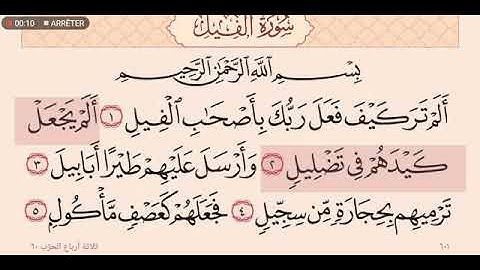 00:10 ■ ARRÊTER
سُورَةُ الفِيلِ
بِسْمِ اللَّهِ الرَّحْمَٰنِ الرَّحِيمِ
أَلَمْ تَرَ كَيْفَ فَعَلَ رَبُّكَ بِأَصْحَابِ الْفِيلِ ١ أَلَمْ يَجْعَلْ
كَيْدَهُمْ فِي تَضْلِيلٍ ٢ وَأَرْسَلَ عَلَيْهِمْ طَيْرًا أَبَابِيلَ ٣
تَرْمِيهِم بِحِجَارَةٍ مِّن سِجِّيلٍ ٤ فَجَعَلَهُمْ كَعَصْفٍ مَّأْكُولٍ ٥
٦٠١
ثلاثة أرباع الحزب ٦٠